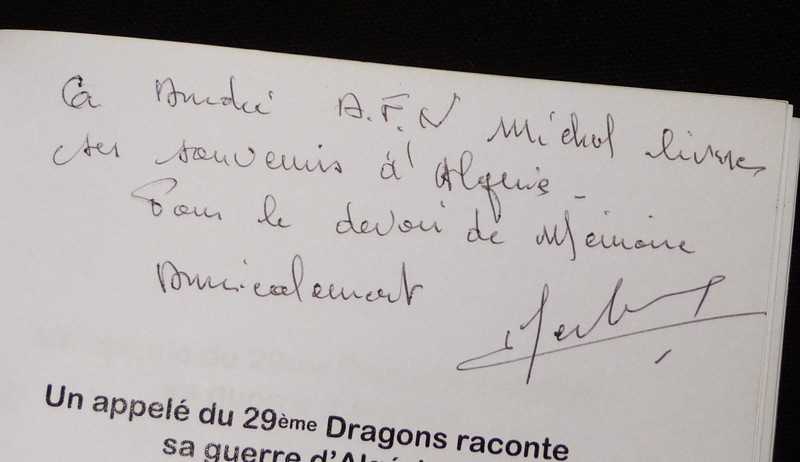 à André A.F.N Michel livre
ses souvenirs d'Algérie -
Pour le devoir de Mémoire
Amicalement
Un appelé du 29ème Dragons raconte
sa guerre d'Algé